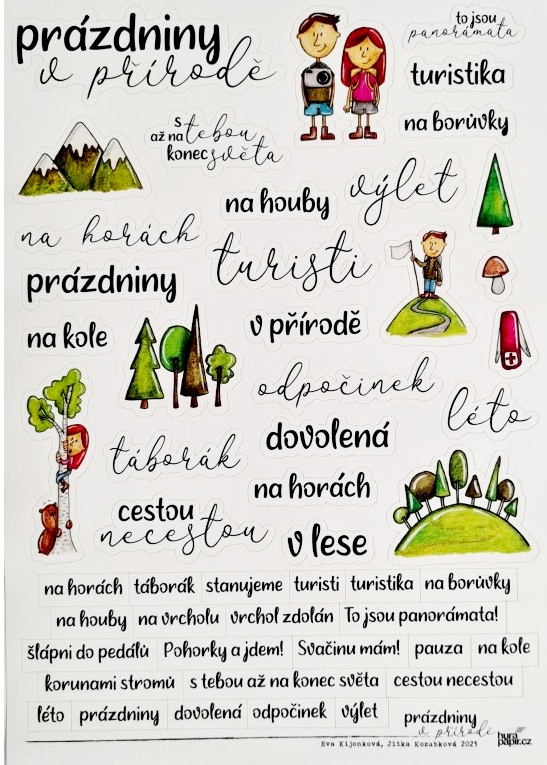 prázdniny
v přírodě
to jsou
panorámata
turistika
na borůvky
s tebou
až na konec světa
výlet
na houby
na horách
turisti
prázdniny
v přírodě
na kole
odpočinek
léto
dovolená
táborák
na horách
cestou
necestou
v lese
na horách táborák stanujeme turisti turistika na borůvky
na houby na vrcholu vrchol zdolán To jsou panorámata!
šlápni do pedálů Pohorky a jdem! Svačinu mám! pauza na kole
korunami stromů s tebou až na konec světa cestou necestou
léto prázdniny dovolená odpočinek výlet
prázdniny
v přírodě
Eva Kijonková, Jitka Kozubková 2025
hurá
papír.cz